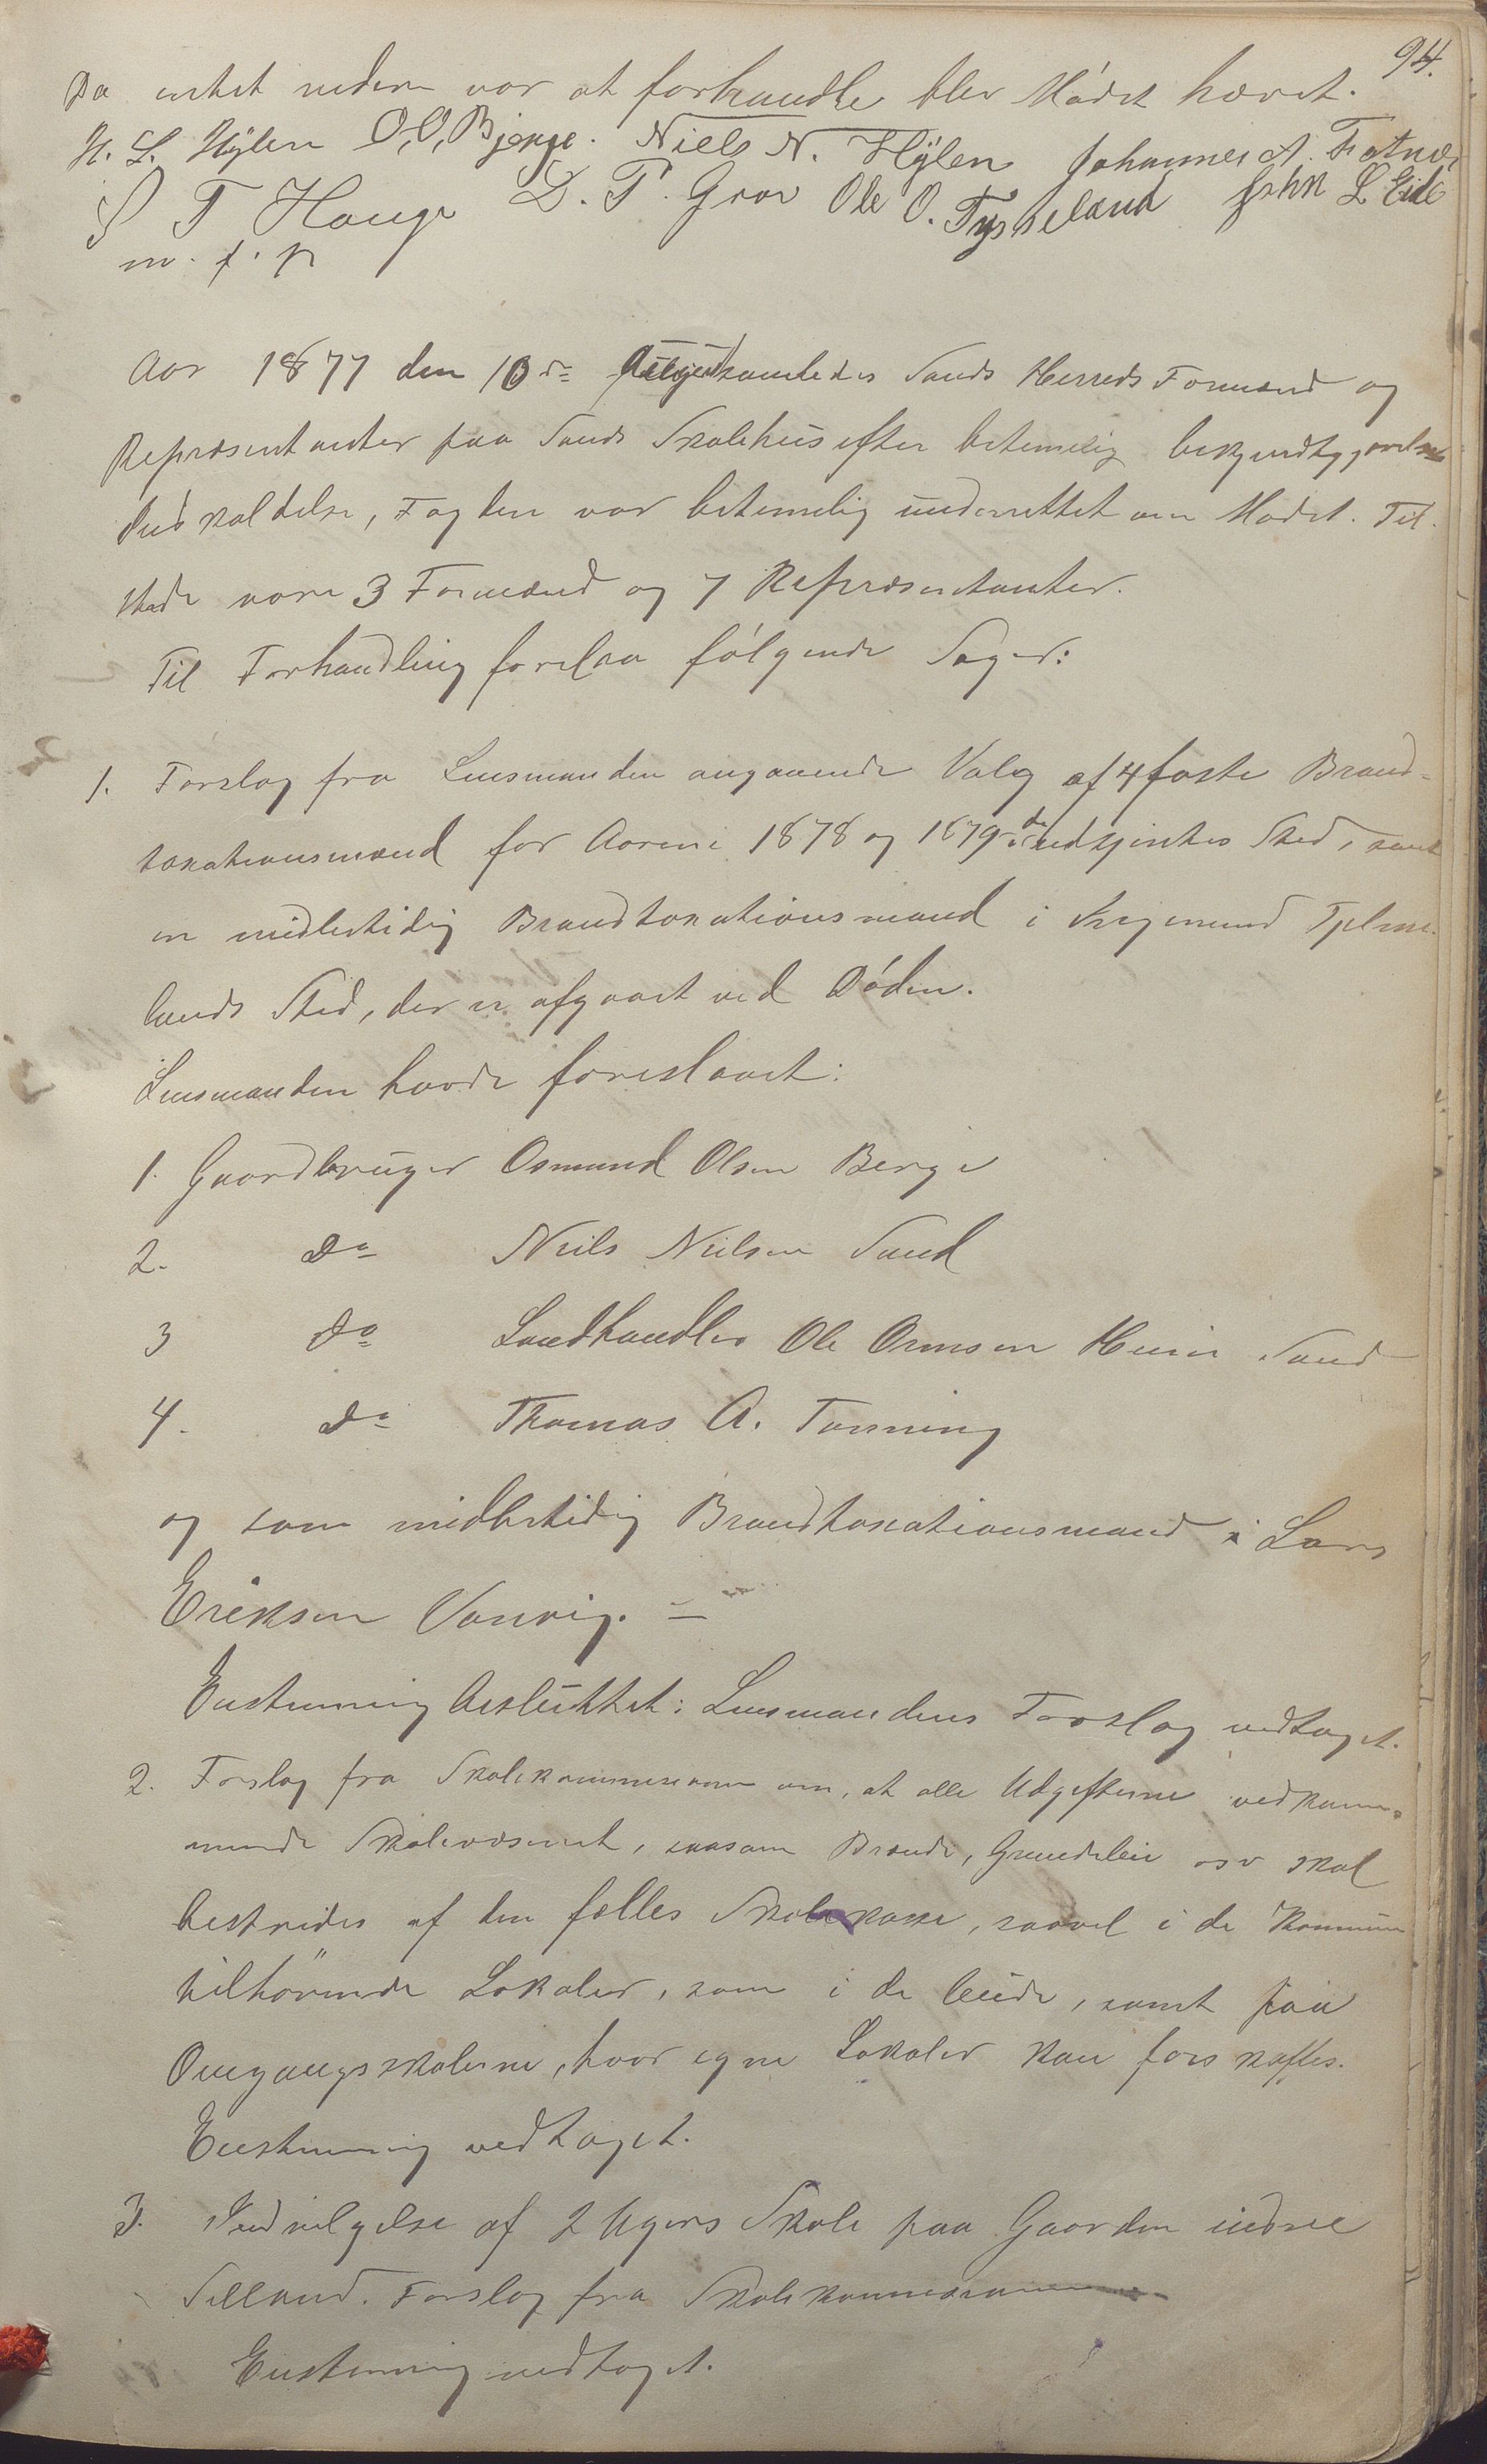 94.
Da intet videre var at forhandle blev Mödet hævet.
H. L. Hÿlen O, O, Bjerge. Niels N. Hÿlen Johannes A. Fatnæs
S T Hauge L. P. Grov Ole O. Tysseland John L Eide
m. f. p
Aar 1877 den 10de August samledes Sands Herreds Formænd og
Repræsentanter paa Sands Skolehus efter betimelig bekjendtgjørelse
Indkaldelse, Fogden var betimelig underrettet om Mødet. Til
stede vare 3 Formænd og 7 Repræsentanter.
Til Forhandling forelaa fölgende Sager:
1. Forslag fra Lensmanden angaaende Valg af 4 faste Brand-
taxationsmænd for Aarene 1878 og 1879 i de udtjentes Sted, samt
en midlertidig Brandtaxationsmand i Sigmund Tjelme
lands Sted, der er afgaaet ved Döden.
Lensmanden havde foreslaaet:
1. Gaardbruger Osmund Olsen Berge
2. do Niels Nielsen Sand
3 do Landhandler Ole Ormsen Sand
4. do Thomas A. Tønning
og som midlertidig Brandtaxationsmand i Lars
Eriksen Vanvig. –
Enstemmig besluttet: Lensmandens Forslag vedtaget.
2. Forslag fra Skolekommissionen om, at alle Udgifterne vedkom-
mende Skolevæsenet, saasom Brænde, Grundeleie osv skal
bestrides af den fælles Skolekasse, saavel i de Kommunen
tilhörende Lokaler, som i de leiede, samt paa
Omgangsskolerne, hvor egne Lokaler kan forskaffes.
Enstemmig vedtaget.
3. Indvilgelse af 2 Ugers Skole paa Gaarden indre
Selland. Forslag fra Skolekommissionen
Enstemmig vedtaget.